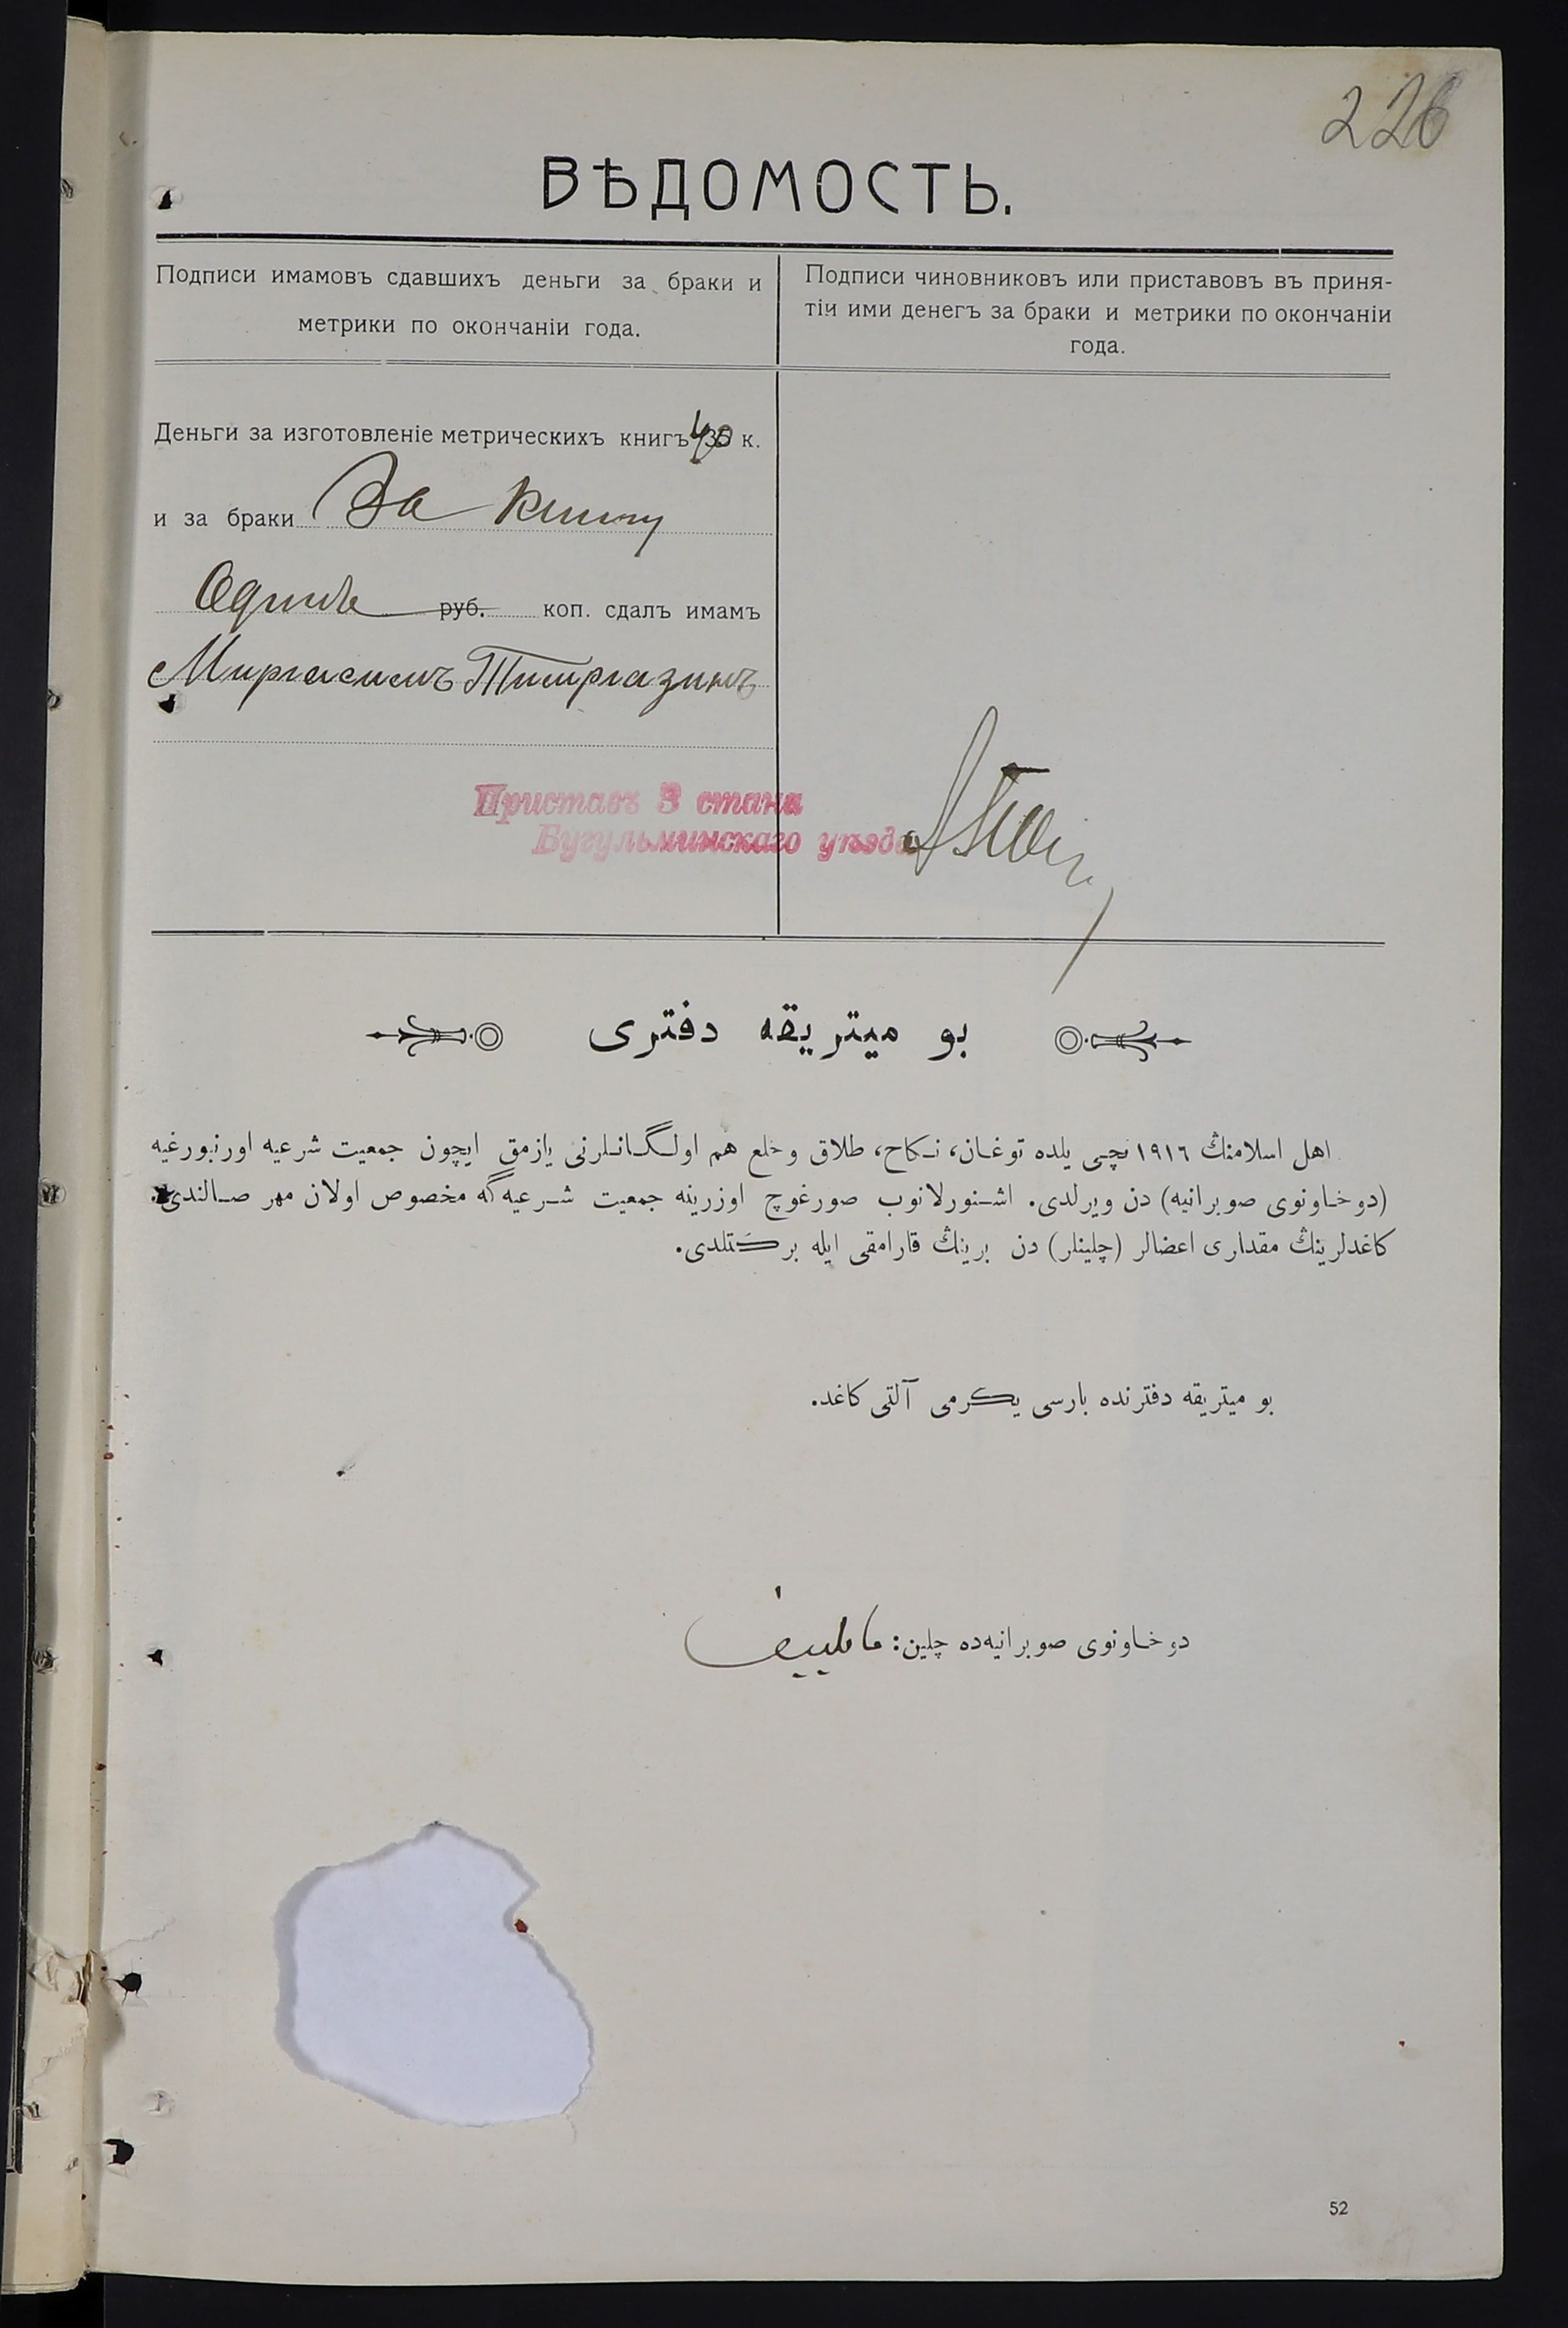 226
ВѢДОМОСТЬ.
Подписи имамовъ сдавшихъ деньги за браки и
метрики по окончаніи года.
Подписи чиновниковъ или приставовъ въ приня-
тіи ими денегъ за браки и метрики по окончаніи
года.
Деньги за изготовленіе метрическихъ книгъ 40 к.
и за браки За книгу
Одинъ руб. коп. сдалъ имамъ
Миргасимъ
Приставъ 3 стана
Бугульминскаго уѣзда
بو ميتريقه دفترى
اهل اسلامنڭ ١٩١٦ نچى يلده توغان، نكاح، طلاق وخلع هم اولگانلرنى يازمق ايچون جمعيت شرعيه اورنبورغيه
(دوخاونوى صوبرانيه) دن ويرلدى. اشنورلانوب صورغوچ اوزرينه جمعيت شرعيه گه مخصوص اولان مهر صالندى.
كاغدلرينڭ مقدارى اعضالر (چلينلر) دن برينڭ قارامقى ايله بركتلدى.
بو ميتريقه دفترنده بارسى يكرمى آلتى كاغد.
دوخاونوى صوبرانيه‌ده چلين:
52